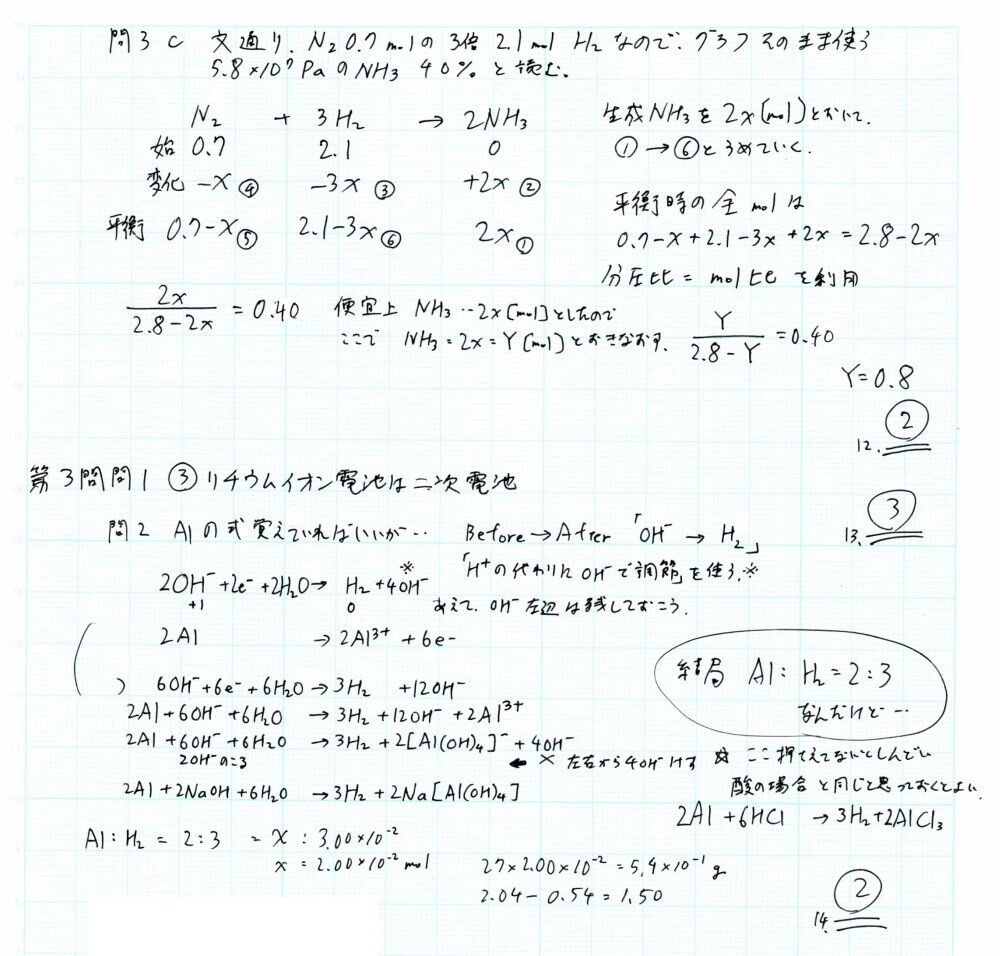 問3 c 文通り、N₂ 0.7 molの 3倍 2.1mol H₂ なので、グラフそのまま使う
5.8×10⁷ PaのNH₃ 40%と読む。
N₂ + 3H₂ → 2NH₃
始 0.7 2.1 0
変化 -x④ -3x③ +2x②
平衡 0.7-x⑤ 2.1-3x⑥ 2x①
生成NH₃を2x(mol)とおいて、
①→⑥とうめていく。
平衡時の全molは
0.7-x+2.1-3x+2x=2.8-2x
分圧比=mol比を利用
2x/(2.8-2x) = 0.40 便宜上 NH₃…2x[mol]としたので
ここで NH₃=2x=Y[mol]とおきなおす、 Y/(2.8-Y) = 0.40
Y=0.8
12. ②
第3問問1 ③リチウムイオン電池は二次電池
13. ③
問2 Alの式覚えていればいいが… Before→After「OH⁻ → H₂」
「H⁺の代わりにOH⁻で調節」を使う。※
2OH⁻+2e⁻+2H₂O→ H₂+4OH⁻ ※
+1 0 あえて、OH⁻左辺は残しておこう。
2Al →2Al³⁺+6e-
6OH⁻+6e⁻+6H₂O→3H₂ +12OH⁻
2Al+6OH⁻+6H₂O →3H₂+12OH⁻+2Al³⁺
2Al+6OH⁻+6H₂O →3H₂+2[Al(OH)₄]⁻+4OH⁻
2OH⁻のこる ← × 左右から4OH⁻けす
2Al+2NaOH+6H₂O →3H₂+2Na[Al(OH)₄]
結局 Al:H₂=2:3
なんだけど…
☆ ここ押さえてないとしんどい
酸の場合と同じと思っておくとよい。
2Al+6HCl →3H₂+2AlCl₃
Al:H₂ = 2:3 = x:3.00×10⁻²
x=2.00×10⁻² mol
27×2.00×10⁻²=5.4×10⁻¹ g
2.04-0.54=1.50
14. ②